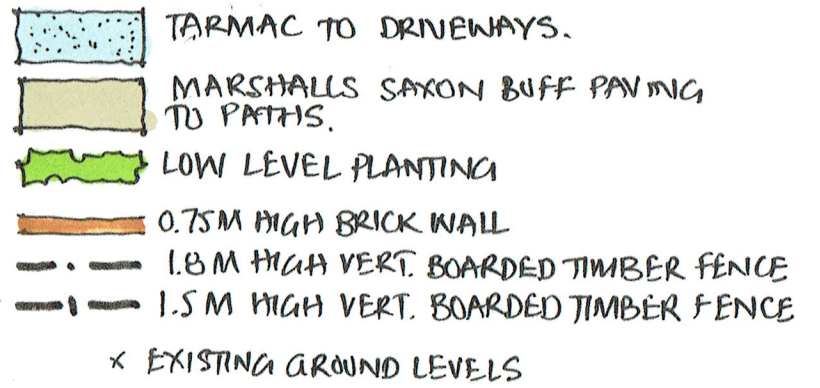 TARMAC TO DRIVEWAYS.
MARSHALLS SAXON BUFF PAVING
TO PATHS.
LOW LEVEL PLANTING
0.75M HIGH BRICK WALL
1.8M HIGH VERT. BOARDED TIMBER FENCE
1.5M HIGH VERT. BOARDED TIMBER FENCE
x EXISTING GROUND LEVELS